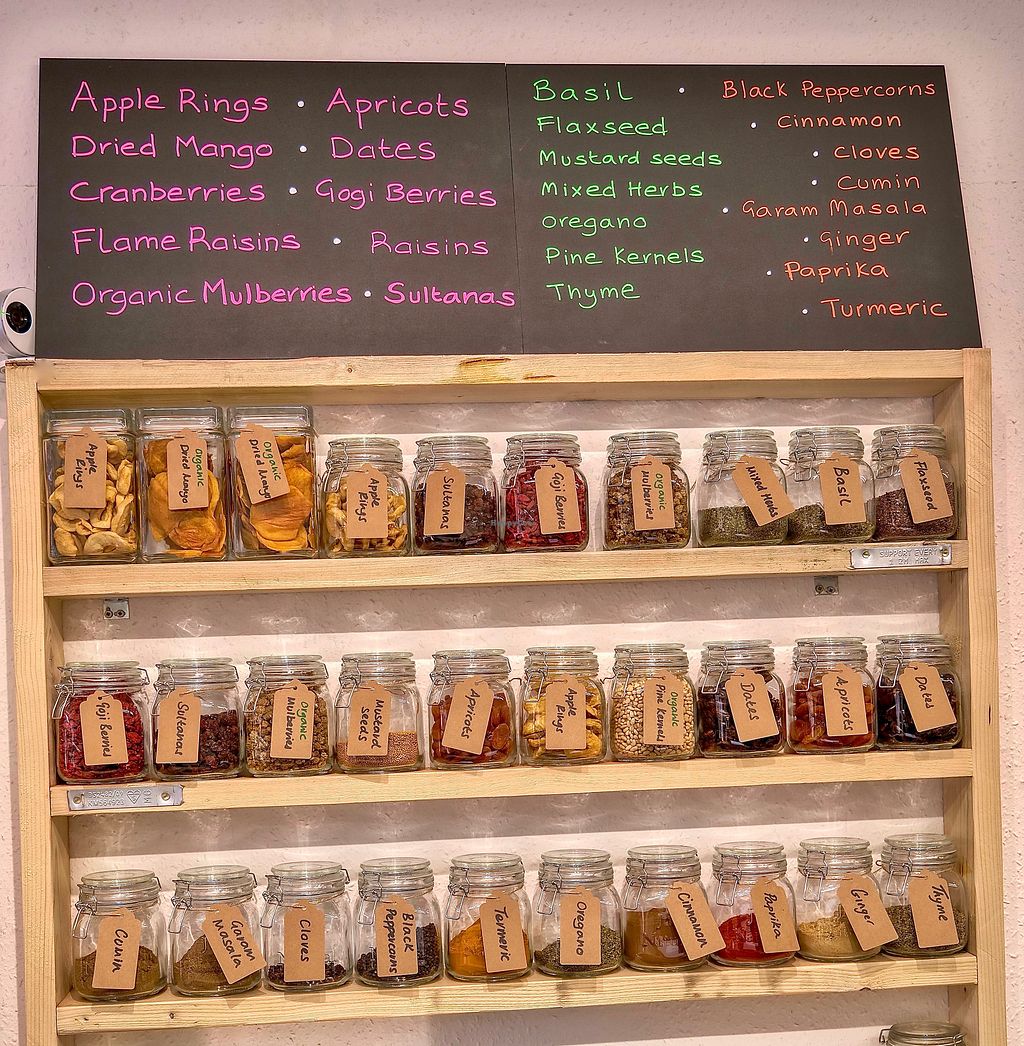 Apple Rings • Apricots
Dried Mango • Dates
Cranberries • Gogi Berries
Flame Raisins • Raisins
Organic Mulberries • Sultanas
Basil • Black Peppercorns
Flaxseed • Cinnamon
Mustard seeds • Cloves
Mixed Herbs • Cumin
Oregano • Garam Masala
Pine Kernels • Ginger
Thyme • Paprika
• Turmeric
Apple
Rings
Organic
Dried Mango
Organic
Dried Mango
Apple
Rings
Sultanas
Goji Berries
Organic
Mulberries
Mixed Herbs
Basil
Flaxseed
SUPPORT EVERY
Goji Berries
Sultanas
Organic
Mulberries
Mustard
seeds
Apricots
Apple
Rings
Organic
Pine Kernels
Dates
Apricots
Dates
Cumin
Garam
Masala
Cloves
Black
Peppercorns
Turmeric
Oregano
Cinnamon
Paprika
Ginger
Thyme